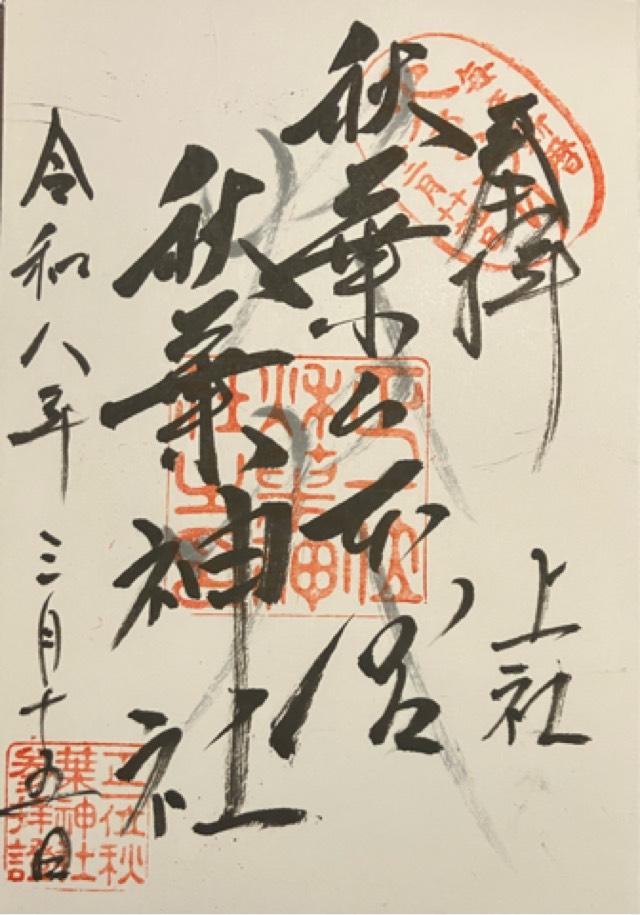 奉拝
上社
秋葉山本宮
秋葉神社
令和八年三月十五日
正一位
秋葉神
社之印
正一位秋
葉神社
参拝證